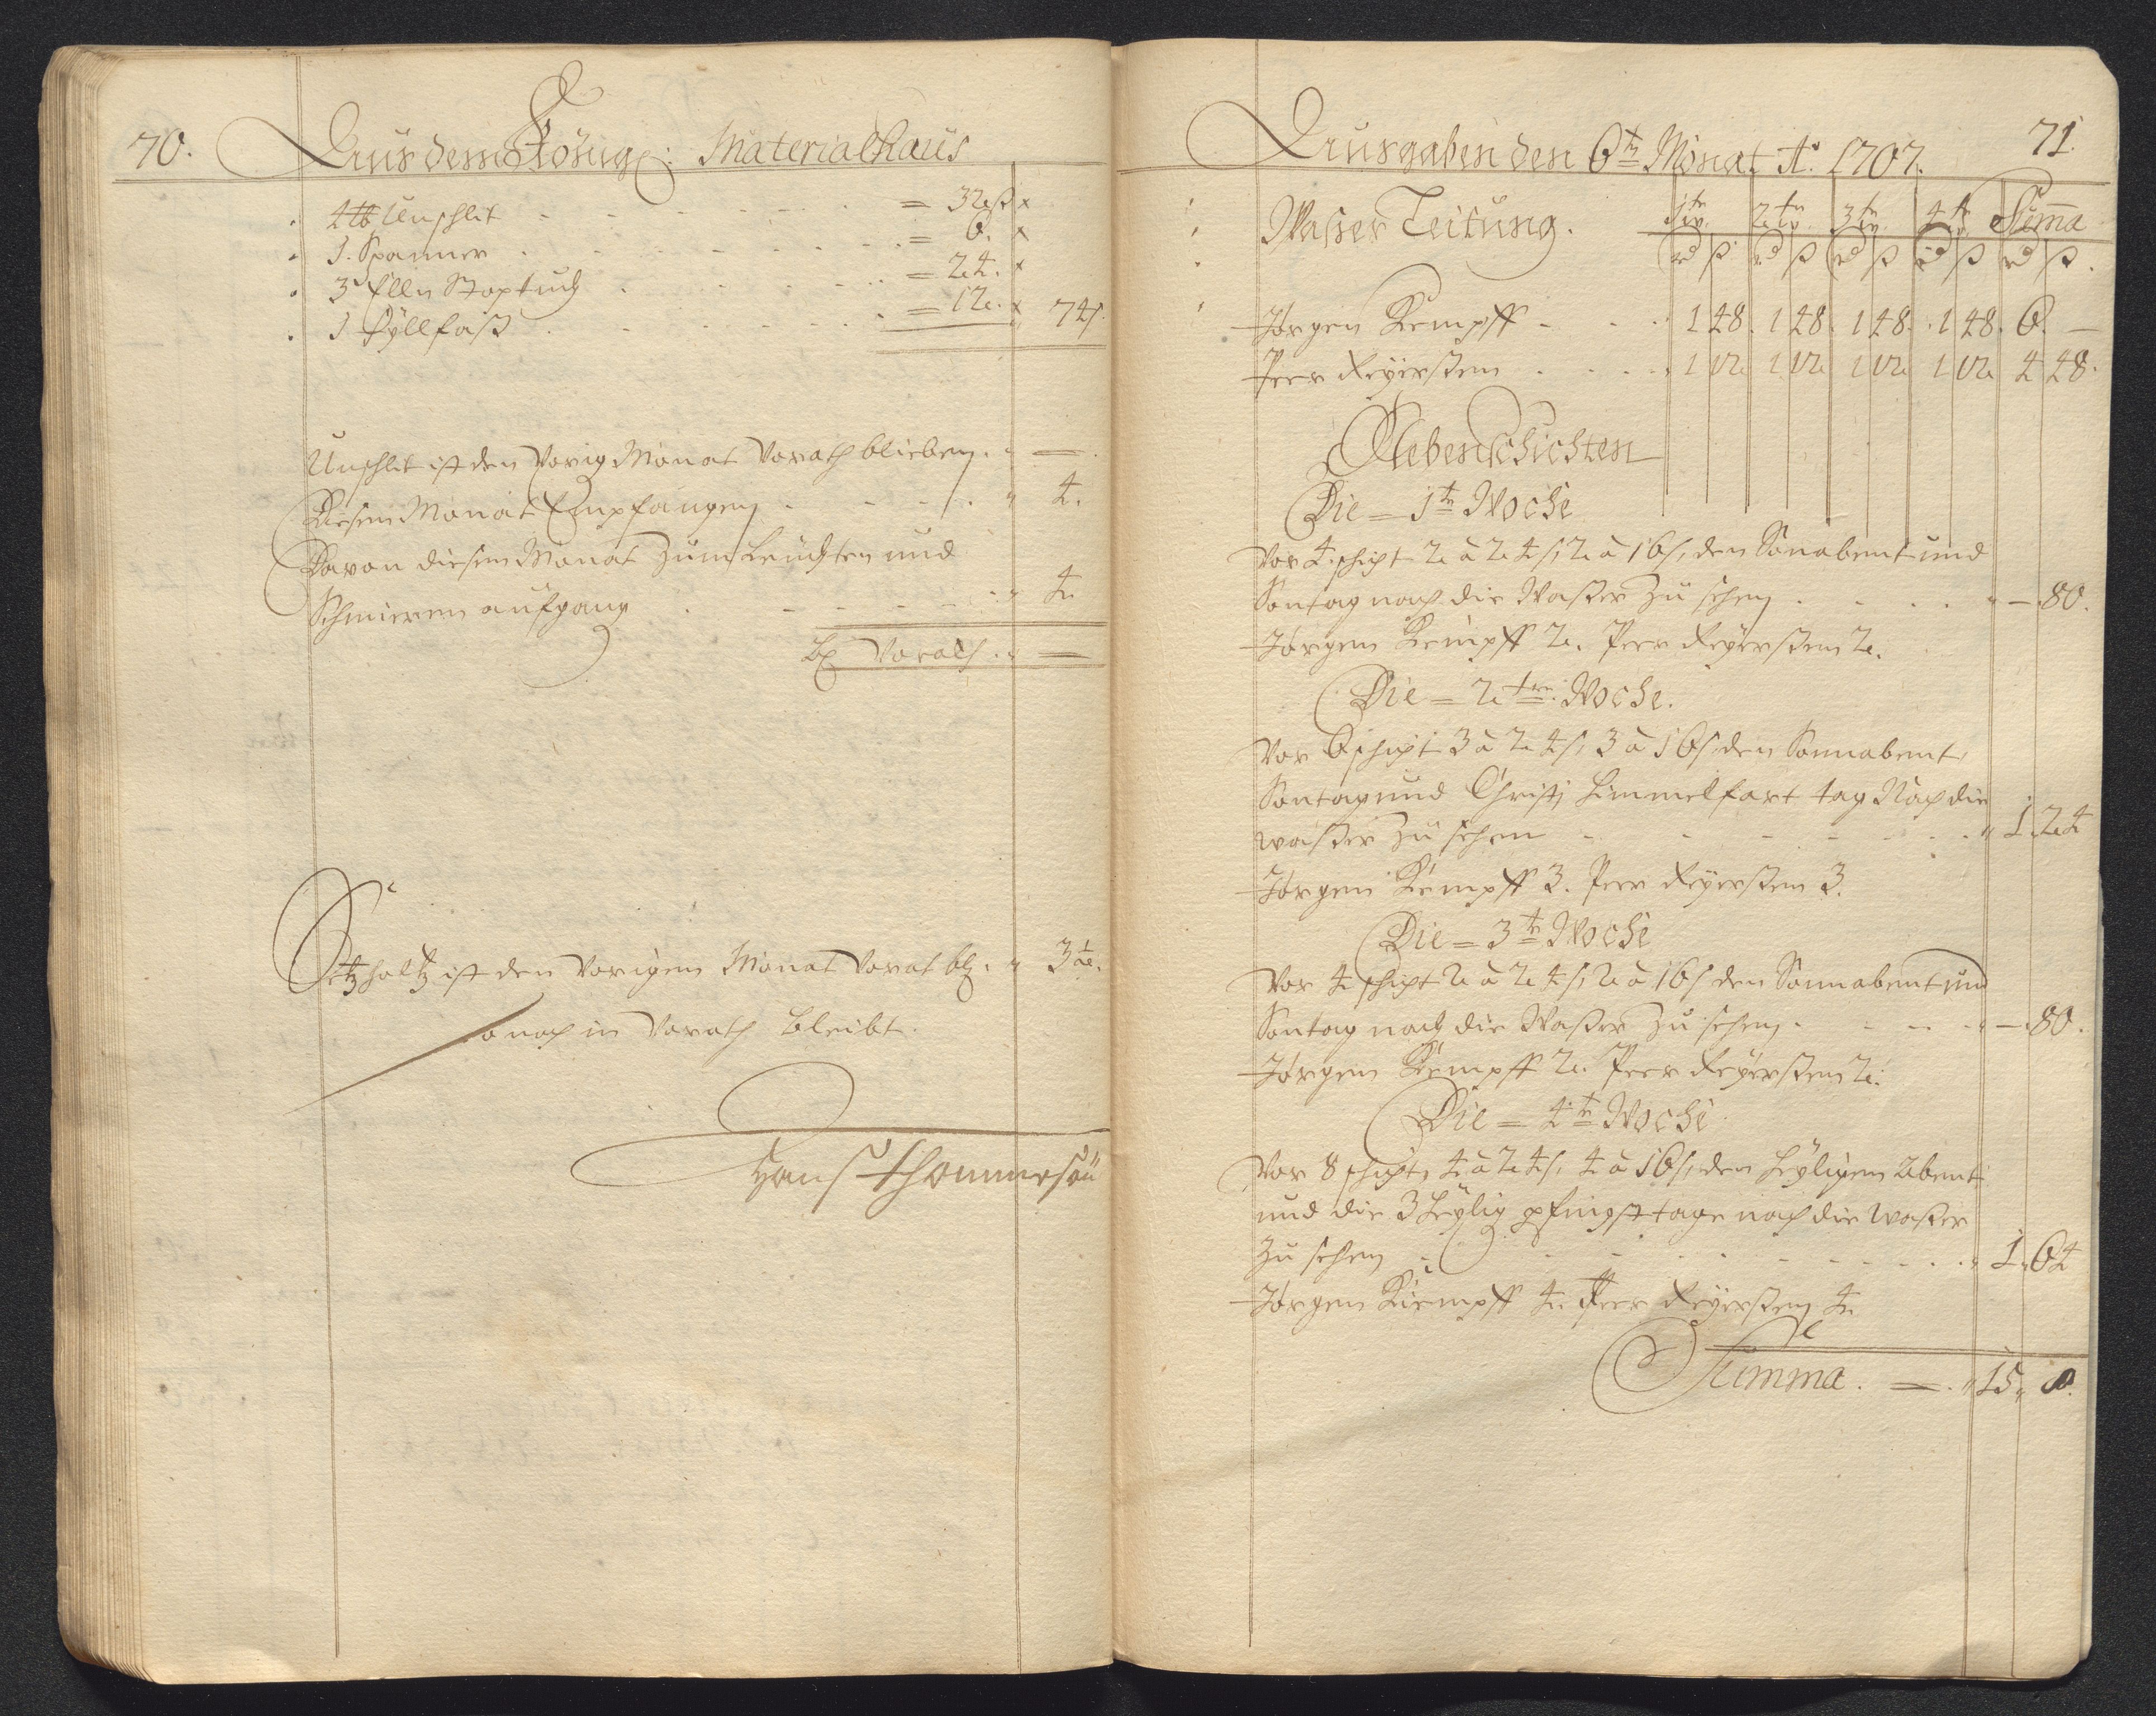 70. Aus dem Königl: Materialhaus
4 ℔ Unschlit = 32 ß x
1. Spanner = 6. x
3 Elln Stoptuch = 24. x
1 Fyllfaß = 12. x 74 ß.
Unschlit ist den Vorig Monat Vorath blieben. " —
Diesen Monat Empfangen " 4.
Davon diesen Monat zum Leüchten und
Schmieren aufgang " 4.
bl Vorath. " —
Setzholtz ist den Vorigen Monat Vorat bl. " 3½.
So noch in Vorath bleibt.
Hans Thommesön
Ausgaben den 6tn Monat Ao. 1707. 71.
Wasser Leitung. 1tr W. 2tr W. 3tr W. 4tr W. Suma
rd ß rd ß rd ß rd ß rd ß.
Jörgen Kempff 1 48. 1 48. 1 48. 1 48. 6. —
Peer Reyerßen 1 12 1 12 1 12 1 12 4 48.
Nebenschichten
Die = 1tn Woche
Vor 4 schicht 2 à 24 ß, 2 à 16 ß, den Sonabent und
Sontag nach die Waßer zu sehen " — 80.
Jörgen Kempff 2. Peer Reyerßen 2.
Die = 2ten Woche.
Vor 6 schicht 3 à 24 ß, 3 à 16 ß, den Sonnabent
Sontag und Christi Himmelfart tag Nach die
waßer zu sehen " 1. 24
Jörgen Kempff 3. Peer Reyerßen 3.
Die = 3tn Woche
Vor 4 schicht 2 à 24 ß, 2 à 16 ß den Sonnabent und
Sontag nach die Waßer zu sehen. " — 80.
Jörgen Kempff 2. Peer Reyerßen 2.
Die = 4tn Woche
Vor 8 schicht, 4 à 24 ß, 4 à 16 ß, den Heyligen Abent
und die 3 Heylig pfingst tage nach die Waßer
zu sehen " 1 " 64
Jörgen Kempff 4. Peer Reyerßen 4.
Summa. = " 15 " 8.